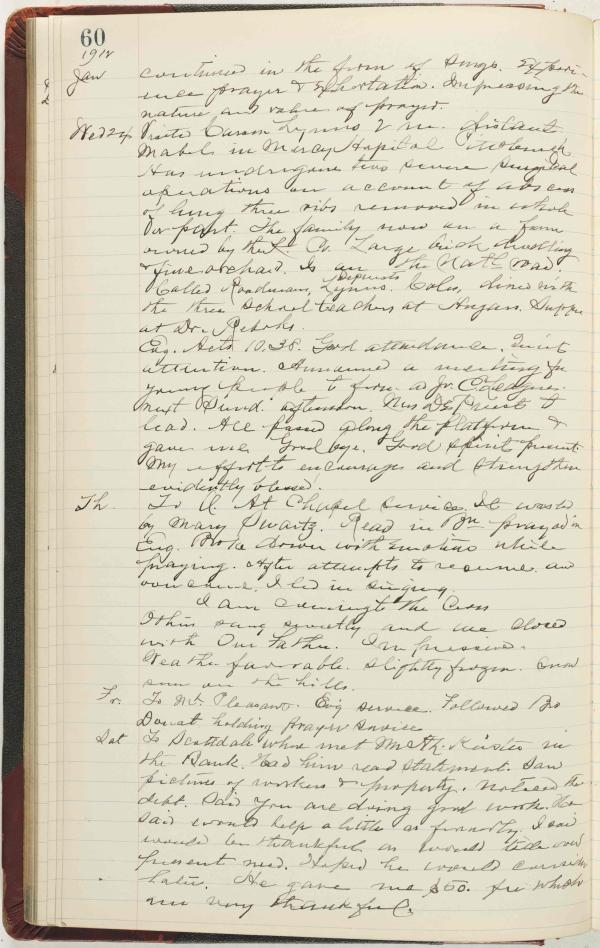 60
1912
Jan continued in the form of songs. Experi-
ence prayer & Exhortation. Impressing the
nature and value of prayer.
Wed 24 Visits Lynns, 2 m. distant
Mabel in Mercy Hospital Pittsburgh
Has undergone two severe surgical
operations on account of abscess
of lung three ribs removed in whole
or part. The family now on a farm
owned by the Co. Large brick dwelling
& fine orchard. Is on the Nat'l road.
Called Roadmans, Lynns. Coles, dined with
the three school teachers at Supper
at Dr.
Eng. Acts 10.38. Good attendance. Quiet
attention. Announced a meeting for
young people to form a Jr. C. League
next Sund. afternoon. Mrs De Priest to
lead. All passed along the platform &
gave me Good bye. Good spirit present.
My effort to encourage and strengthen
evidently blessed.
Th. To U. At Chapel service. It was led
by Mary Swartz. Read in Bm prayed in
Eng. Broke down with emotion while
praying. After attempts to resume and
overcame. I led in singing.
I am coming to the Cross
Others sang sweetly and we closed
with Our Father. Impressive.
Weather favorable. Slightly frozen. Snow
seen on the hills.
Fr. To Mt. Pleasant. Eng service. Followed Bro
Donat holding prayer service
Sat To Scottdale where met Mr in
the Bank. Had him read statement. Saw
pictures of workers & property. Noticed the
debt. Said You are doing good work. He
said would help a little as friendly. I said
would be thankful as would tide over
present need. Hoped he would consider
later. He gave me $50. for which
am very thankful.